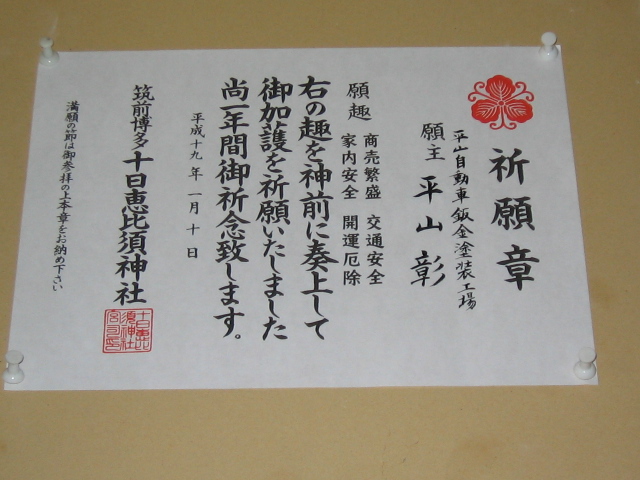 祈願章
平山自動車鈑金塗装工場
願主 平山彰
願趣 商売繁盛 交通安全
家内安全 開運厄除
右の趣を神前に奏上して
御加護を祈願いたしました
尚一年間御祈念致します。
平成十九年一月十日
筑前博多十日恵比須神社
満願の節は御参拝の上本章をお納め下さい